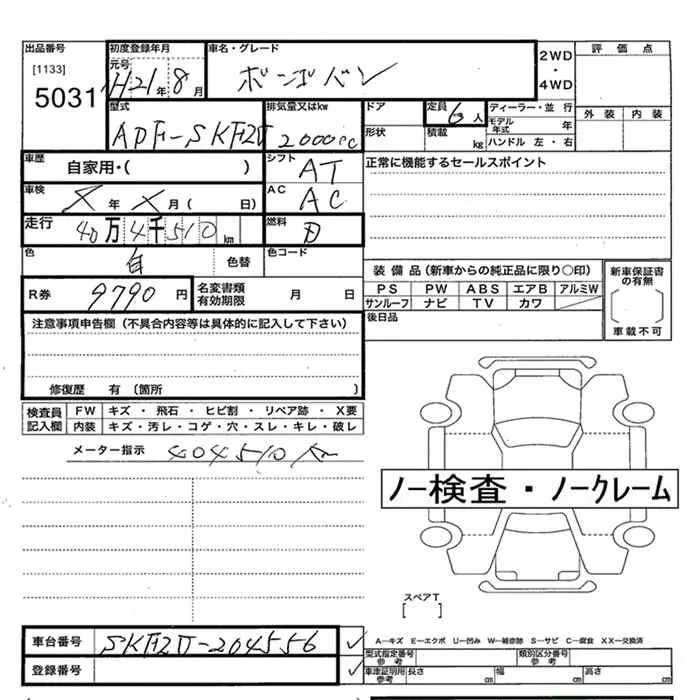 出品番号 初度登録年月 車名・グレード 2WD・4WD 評価点
[1133] 元号 H21年8月 ボンゴバン
5031
型式 排気量又はkw ドア 定員 6人 ディーラー・並行 外装 内装
2000cc 形状 積載 kg モデル年式 年
ハンドル 左・右
車歴 自家用・( ) シフト AT 正常に機能するセールスポイント
車検 X年X月( 日) AC AC
走行 40万4千510km 燃料
色 白 色替 色コード
装備品(新車からの純正品に限り○印) 新車保証書の有無
R券 9790円 名変書類有効期限 月 日 PS PW ABS エアB アルミW
サンルーフ ナビ TV カワ
車載不可
注意事項申告欄(不具合内容等は具体的に記入して下さい) 後日品
修復歴 有(箇所 )
検査員記入欄 FW キズ・飛石・ヒビ割・リペア跡・X要
内装 キズ・汚レ・コゲ・穴・スレ・キレ・破レ
メーター指示 404510km
ノー検査・ノークレーム
スペアT
[ ]
車台番号 SKF2V-204556 ✓ A-キズ E-エクボ U-凹み W-補修跡 S-サビ C-腐食 XX-交換済
型式指定番号 参考 類別区分番号 参考
登録番号 ✓ 車庫証明用 参考 長さ cm 幅 cm 高さ cm